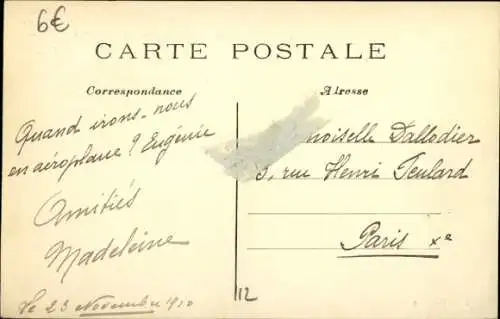 6€
CARTE POSTALE
Correspondance
Adresse
Quand irons-nous
en aéroplane ? Eugénie
Amitiés
Madeleine
le 23 Novembre 1910
moiselle Dallodier
3, rue Henri Feulard
Paris xe
112